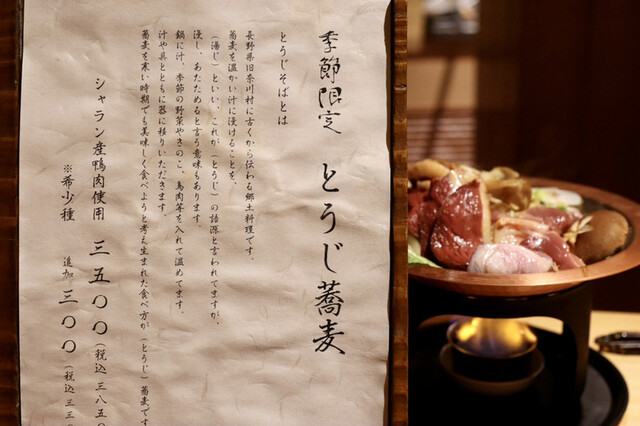 季節限定 とうじ蕎麦
とうじそばとは
長野県旧奈川村に古くから伝わる郷土料理です。
蕎麦を温かい汁に浸けることを、
(湯じ)といい、これが(とうじ)の語源と言われてますが、
浸し、あたためると言う意味もあります。
鍋に汁、季節の野菜やきのこ、鳥肉等を入れて温めてます。
汁や具とともに器に移りいただきます。
蕎麦を寒い時期でも美味しく食べようと考え生まれた食べ方が(とうじ)蕎麦です
シャラン産鴨肉使用 三五〇〇(税込三八五〇
※希少種 追加 三〇〇(税込三三